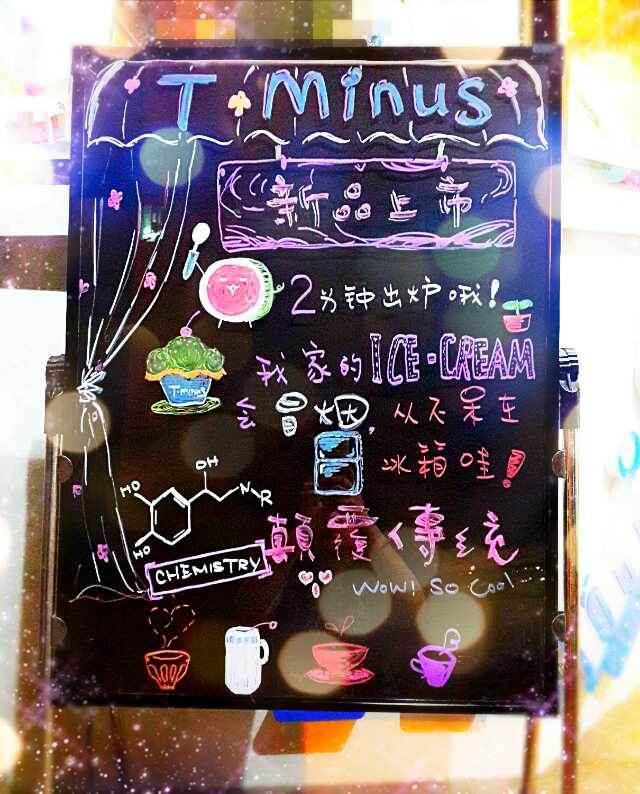 T·Minus
新品上市
2分钟出炉哦!
T-MINUS
我家的ICE-CREAM
会冒烟,从不呆在
冰箱哇!
OH
HO
N-R
HO
顛覆傳统
CHEMISTRY
WOW! SO Cool...